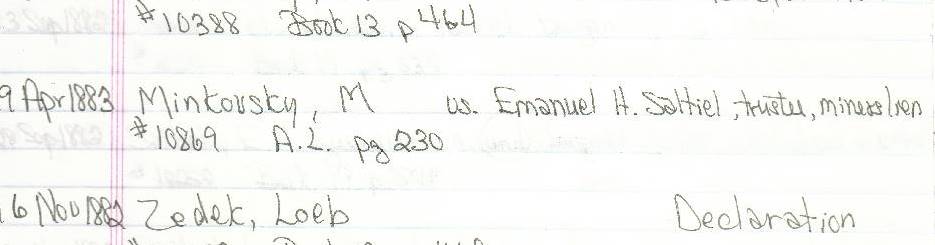 #10388 Book 13 p 464
9 Apr 1883 Minkovsky, M vs. Emanuel H. Saltiel, trustee, miners lien
#10869 A.L. pg 230
6 Nov 1882 Zedek, Loeb Declaration